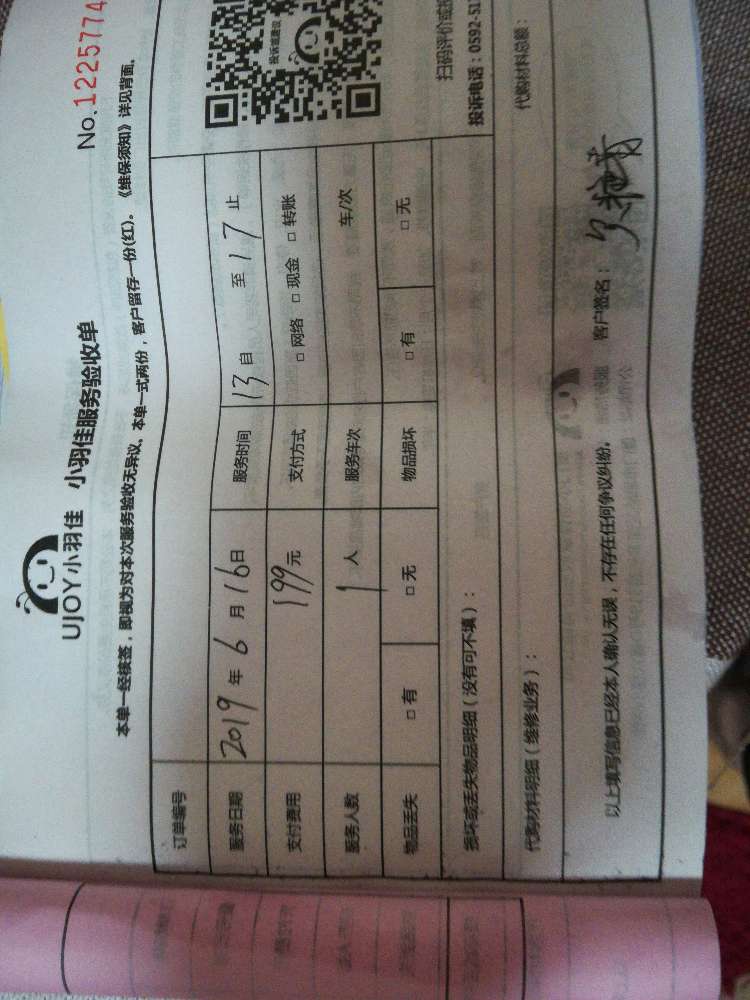 UJOY小羽佳 小羽佳服务验收单
No.1225774
本单一经核签，即视为对本次服务验收无异议。本单一式两份，客户留存一份(红)。《维保须知》详见背面。
订单编号
服务日期 2019年6月16日 服务时间 13自 至17止
支付费用 199元 支付方式 □网络 □现金 □转账
服务人数 1人 服务车次 车/次
物品丢失 □有 □无 物品损坏 □有 □无
投诉或建议
扫码评价或投
投诉电话：0592-517
损坏或丢失物品明细（没有可不填）：
代购材料明细（维修业务）： 代购材料总额：
以上填写信息已经本人确认无误，不存在任何争议纠纷。 客户签名：